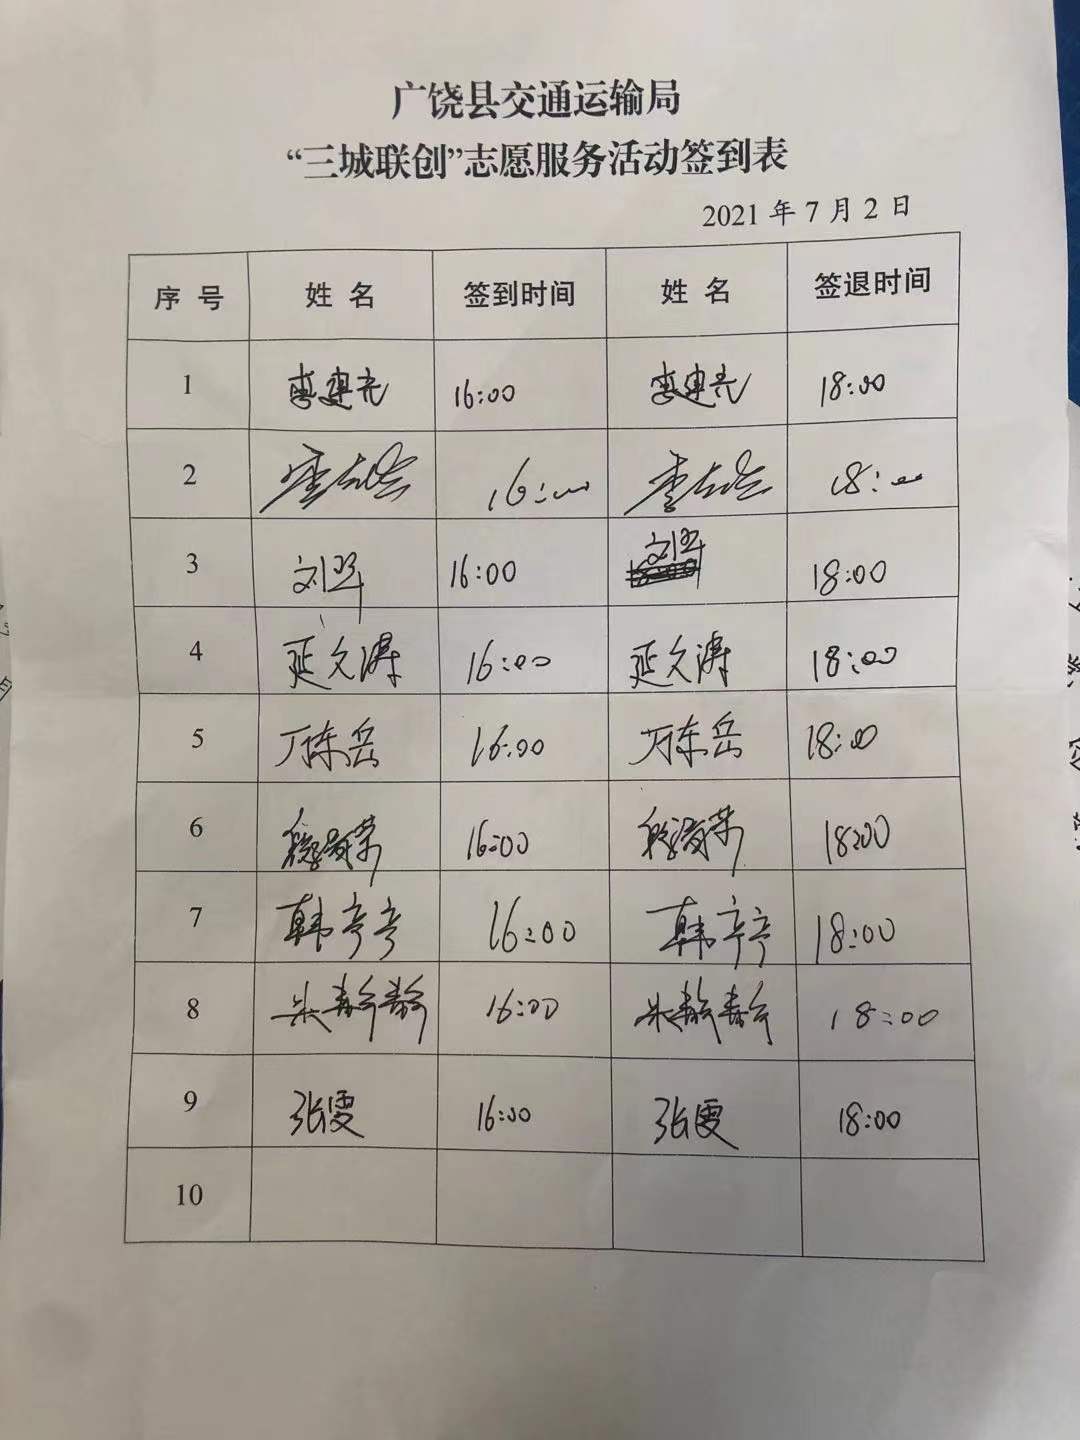 广饶县交通运输局
“三城联创”志愿服务活动签到表
2021年7月2日
序号 姓名 签到时间 姓名 签退时间
1 李建光 16:00 李建光 18:00
2 16:00 18:00
3 16:00 18:00
4 延文涛 16:00 延文涛 18:00
5 万东岳 16:00 万东岳 18:00
6 16:00 18:00
7 韩亭亭 16:00 韩亭亭 18:00
8 16:00 18:00
9 张雯 16:00 张雯 18:00
10